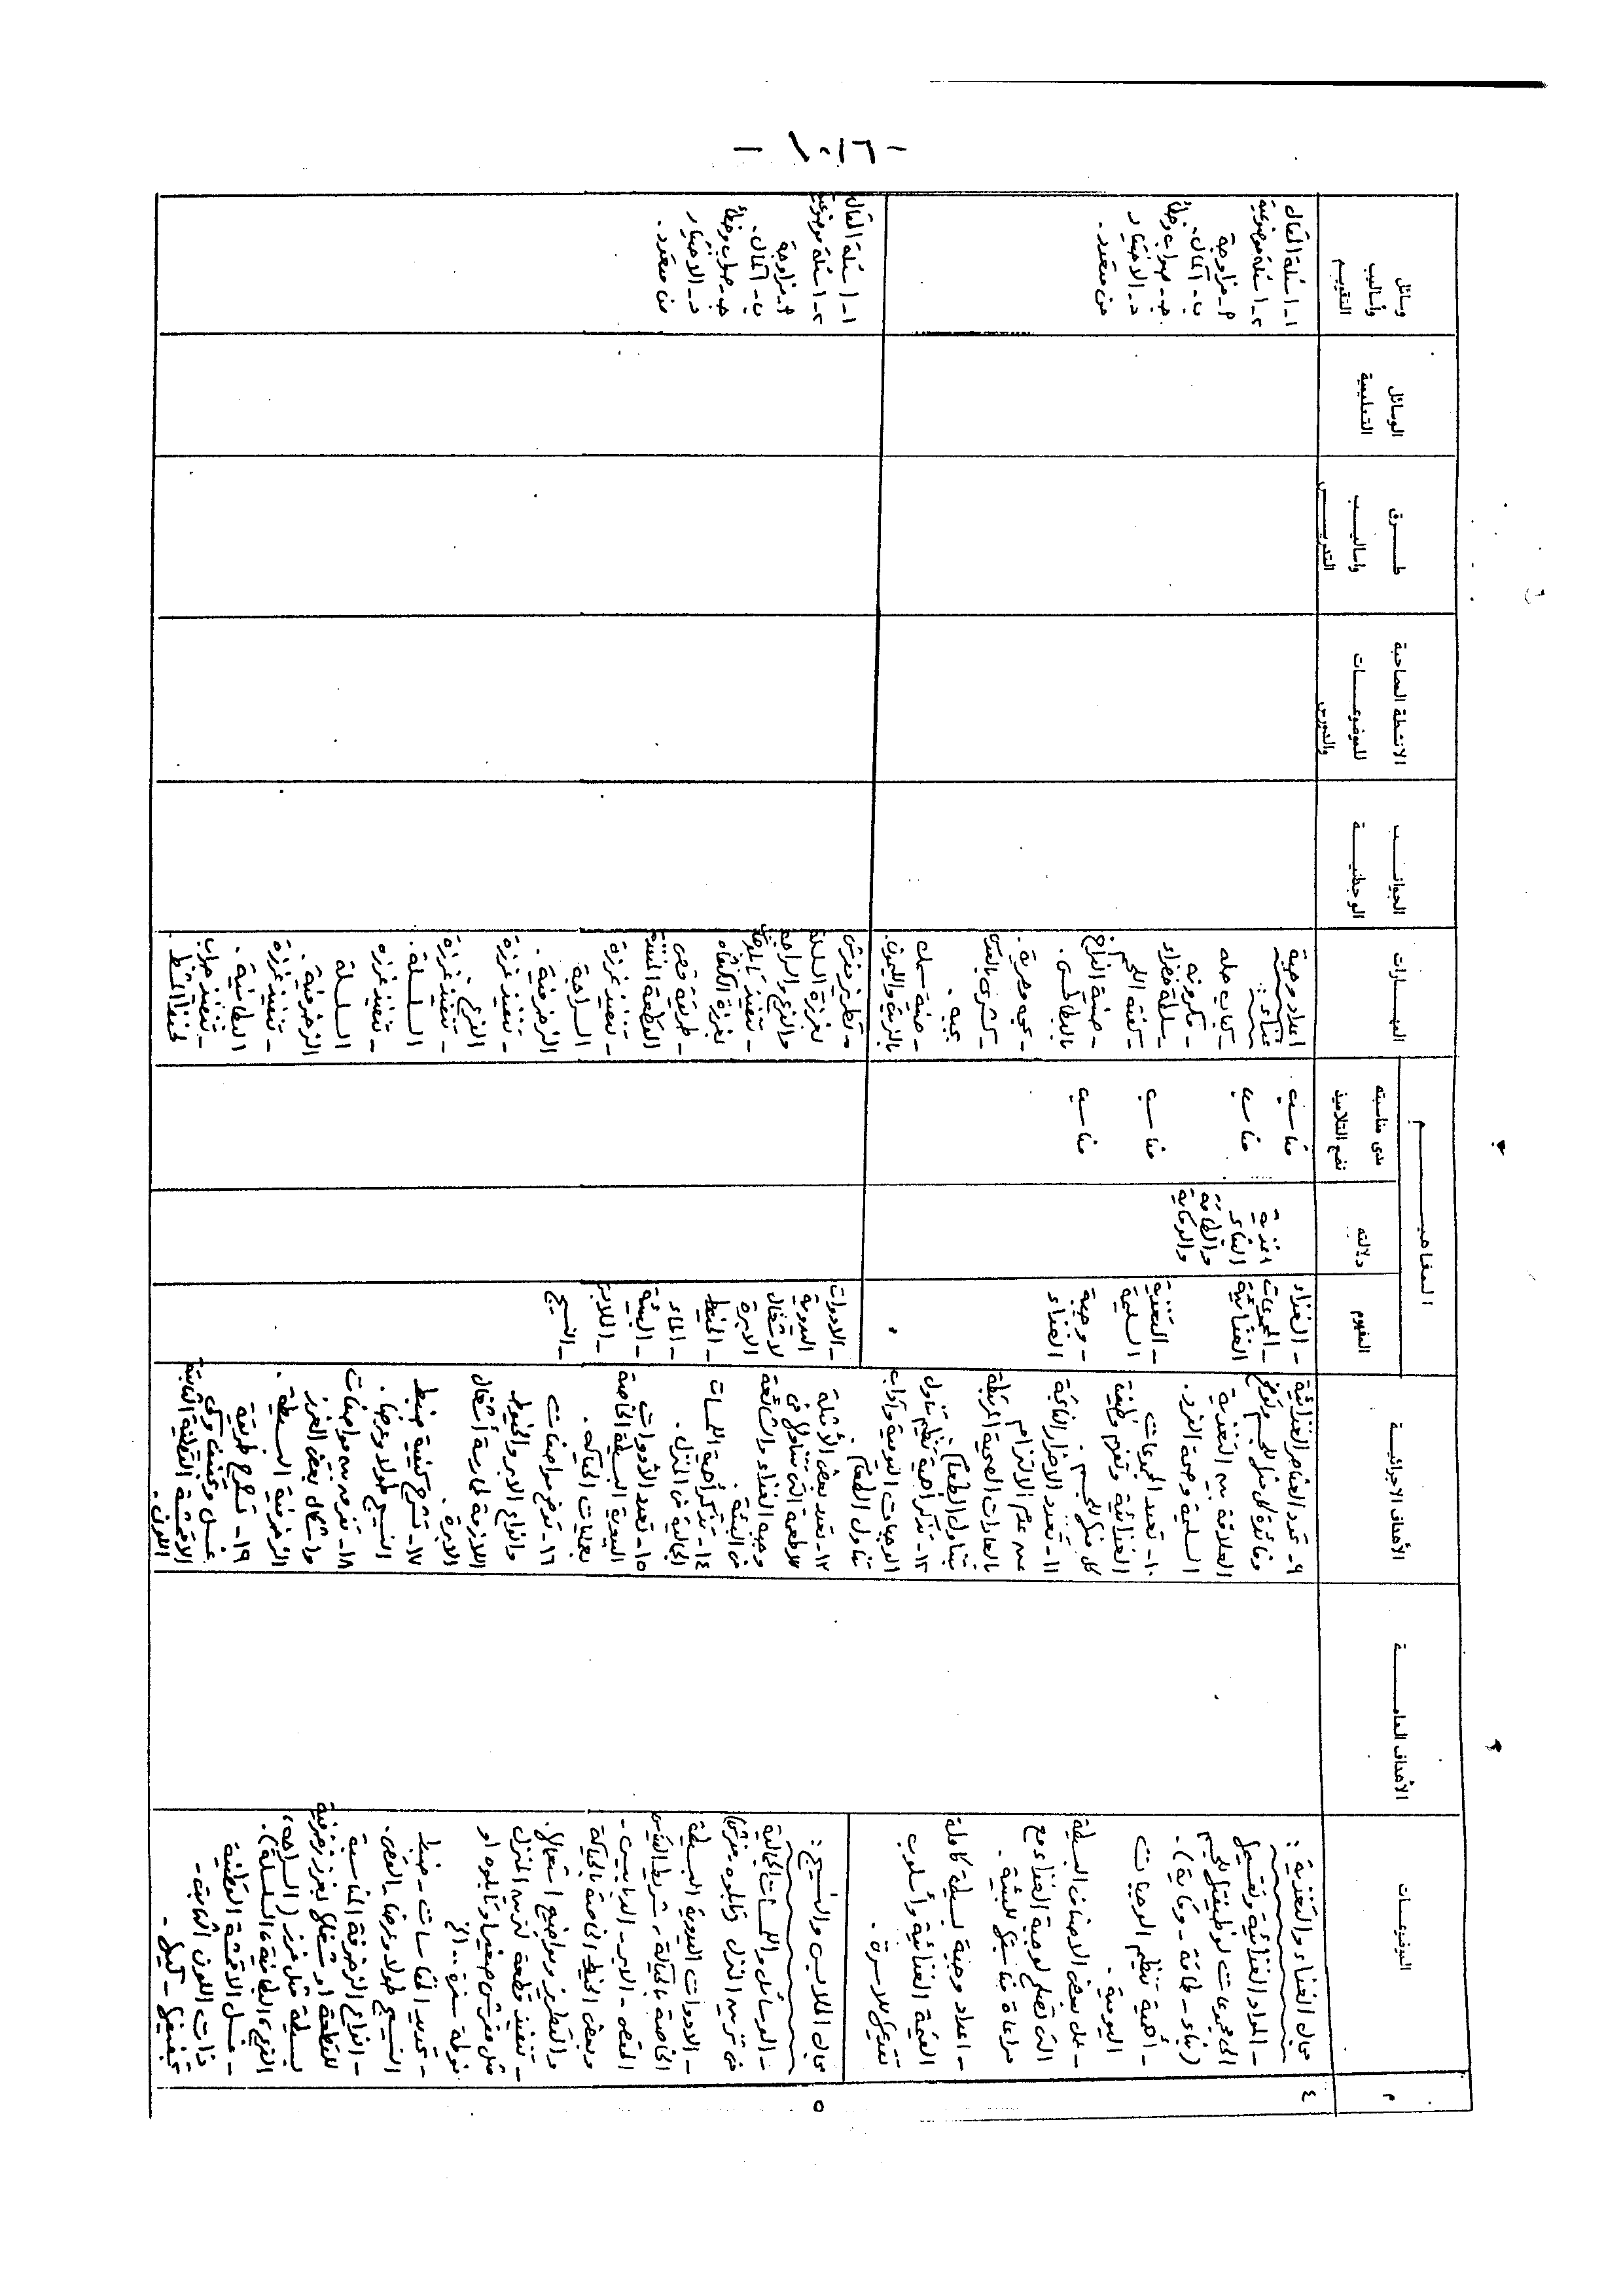 - ١٠١٦ -
م
الموضوعات
الأهداف العامة
الأهداف الاجرائية
المفاهيم
المفهوم
دلالته
مدى مناسبته
نضج التلاميذ
المهارات
الجوانب
الوجدانية
الانشطة المصاحبة
للموضوعات
والدروس
طرق
واساليب
التدريس
الوسائل
التعليمية
وسائل
وأساليب
التقويم
٤
مجال الغذاء والتغذية :
- المواد الغذائية وتقسيمها
الى مجموعات لوظيفتها للجسم
(بناء - طاقة - وقاية).
- أهمية تنظيم الوجبات
اليومية .
- عمل بعض الاصناف البسيطة
التى تصلح لوجبة الغذاء مع
مراعاة مناسبتها للبيئة .
- اعداد وجبة بسيطة كاملة
القيمة الغذائية وأسلوب
تقديمها للاسرة .
٩- تحدد العناصر الغذائية
وفائدة كل منها للجسم وتوضح
العلاقة بين التغذية
السليمة وصحة الفرد.
١٠- تعدد المجموعات
الغذائية وتفهم وظيفة
كل منها للجسم .
١١- تعدد الاضرار الناتجة
عن عدم الالتزام
بالعادات الصحية المرتبطة
بتناول الطعام .
١٢- تذكر أهمية تنظيم تناول
الوجبات اليومية وآداب
تناول الطعام .
١٣- تعدد بعض الأمثلة
للاطعمة التى تتناولها فى
وجبة الغذاء والشائعة
فى البيئة .
- الغذاء
- المجموعات
الغذائية
- التغذية
السليمة
- وجبة
الغذاء
اغذية
البناء
والطاقة
والوقاية
مناسب
مناسب
مناسب
مناسب
اعداد وجبة
غذاء :
- كباب حله
- مكرونه
- سلطة خضراء
- كفتة اللحم
- صينية الفراخ
بالبطاطس .
- عجه مصرية .
- كشرى بالعدس
بجبه .
- صينية سمك
بالزيت والليمون.
١- اسئلة المقال
٢- اسئلة موضوعية
م- مزاوجة
ب- اكمال.
ج- صواب وخطأ
د- الاختيار
من متعدد .
٥
مجال الملابس والنسيج :
- الوسائل واللمسات الجمالية
فى تزيين المنزل (تابلوه - مفرش)
- الادوات اليدوية البسيطة
الخاصة بالحياكة - شريط القياس
المقص - الابر - الدبابيس -
وبعض الخيوط الخاصة بالحياكة
والتطريز ومواضع استعمالها.
- تنفيذ قطعة لتزيين المنزل
مثل مفرش صغير او تابلوه او
فوطة سفرة .. الخ
- تحديد المقاسات - ضبط
النسيج طولا وعرضا - القص.
- انواع الزخرفة المناسبة
للقطعة او شغلها بغرز زخرفية
بسيطة مثل غرز (السراجه،
الفرع، البطانية، السلسلة).
- غسل الاقمشة القطنية
ذات اللون الثابت -
تجفيفها - كيها .
١٤- تذكر أهمية اللمسات
الجمالية فى المنزل .
١٥- تعدد الأدوات
اليدوية البسيطة الخاصة
بعمليات الحياكه .
١٦- توضح مواصفات
وانواع الابر والخيوط
اللازمة لممارسة أشغال
الابرة .
١٧- تشرح كيفية ضبط
النسيج طولا وعرضا .
١٨- تفرق بين مواصفات
واشكال بعض الغرز
الزخرفية البسيطة .
١٩- تشرح طريقة
غسل وتجفيف وكى
الاقمشة القطنية الثابتة
اللون .
- الادوات
اليدوية
لاشغال
الابرة
- الخيط
- الماء
- البيئة
- الملابس
- النسيج
- تطريز مفرش
بغرزة السلسلة
والفرع والسراجه
- تنفيذ
بغرزة الكنفاه
- طريقة قص
القطعة المنفذة
- تنفيذ غرزة
السراجة
الزخرفية .
- تنفيذ غرزة
الفرع .
- تنفيذ غرزة
السلسلة .
- تنفيذ غرزة
السلسلة
الزخرفية .
- تنفيذ غرزة
البطانية .
- تنفيذ جراب
لحفظ المشط
١- اسئلة المقال
٢- اسئلة موضوعية
م- مزاوجة
ب- اكمال.
ج- صواب وخطأ
د- الاختيار
من متعدد .